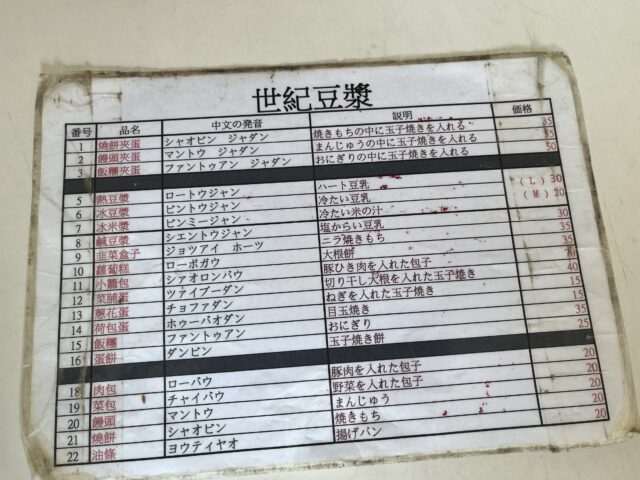 世紀豆漿
番号 品名 中文の発音 説明 価格
1 燒餅夾蛋 シャオビン ジャダン 焼きもちの中に玉子焼きを入れる 35
2 饅頭夾蛋 マントウ ジャダン まんじゅうの中に玉子焼きを入れる
3 飯糰夾蛋 ファントゥアン ジャダン おにぎりの中に玉子焼きを入れる 50
5 熱豆漿 ロートウジャン ハート豆乳 (L) 30
6 冰豆漿 ビントウジャン 冷たい豆乳 (M) 20
7 冰米漿 ビンミージャン 冷たい米の汁
8 鹹豆漿 シエントウジャン 塩からい豆乳 30
9 韭菜盒子 ジョツアイ ホーツ ニラ焼きもち 35
10 蘿蔔糕 ローボガウ 大根餅 35
11 小籠包 シアオロンバウ 豚ひき肉を入れた包子
12 菜脯蛋 ツアイブーダン 切り干し大根を入れた玉子焼き 40
13 蔥花蛋 チョファダン ねぎを入れた玉子焼き 15
14 荷包蛋 ホゥーバオダン 目玉焼き 15
15 飯糰 ファントゥアン おにぎり 35
16 蛋餅 ダンビン 玉子焼き餅 25
18 肉包 ローバウ 豚肉を入れた包子 20
19 菜包 チャイバウ 野菜を入れた包子 20
20 饅頭 マントウ まんじゅう 20
21 燒餅 シャオビン 焼きもち 20
22 油條 ヨウティヤオ 揚げパン 20